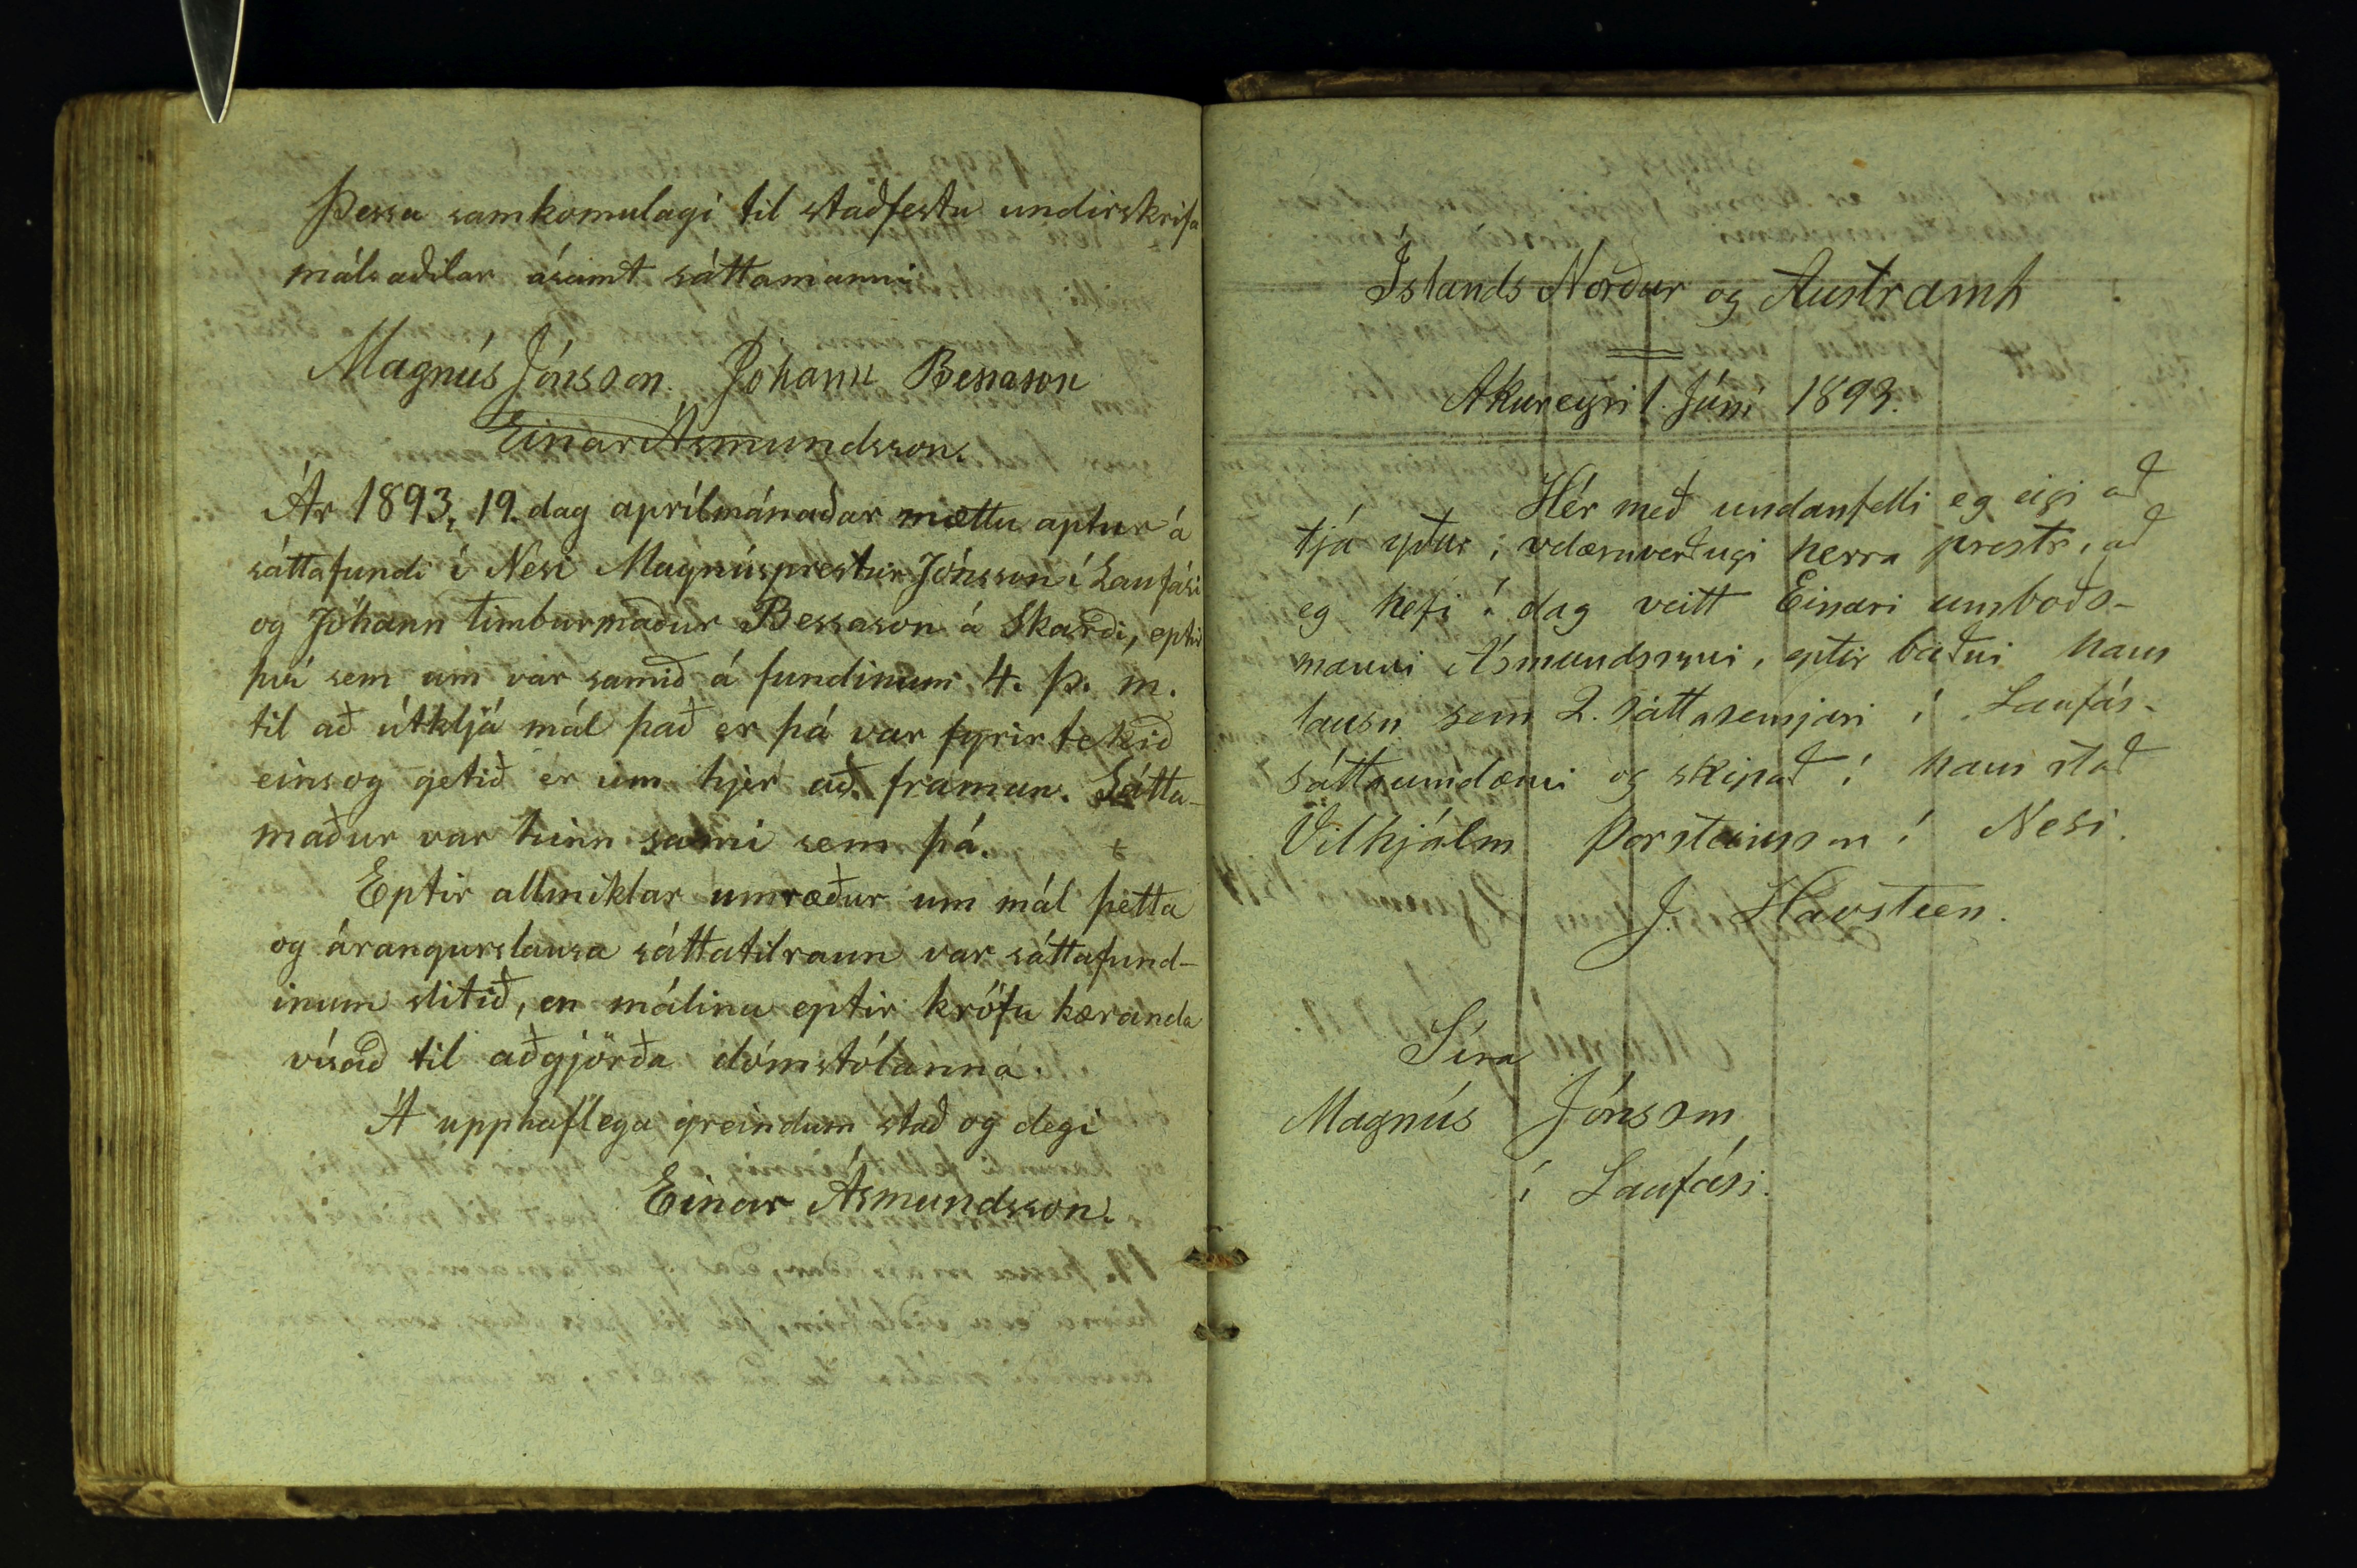 Þessu samkomulagi til staðfestu undirskrifa
málsaðilar ásamt sáttamanni
Magnús Jónsson. Jóhann Bessason
Einar Ásmundsson.
Ár 1893, 19. dag aprílmánaðar mættu aptur á
sáttafundi í Nesi Magnús prestur Jónsson í Laufási
og Jóhann timburmaður Bessason á Skarði, eptir
því sem um var samið á fundinum 4. þ. m.
til að útkljá mál það er þá var fyrir tekið
eins og getið er um hjer að framan. Sátta-
maður var hinn sami sem þá.
Eptir allmiklar umræður um mál þetta
og árangurslausa sáttatilraun var sáttafund-
inum slitið, en málinu eptir kröfu kæranda
vísað til aðgjörða dómstólanna.
Á upphaflega greindum stað og degi
Einar Ásmundsson.
Íslands Norður og Austramt
Akureyri 1. Júní 1893.
Hér með undanfelli eg eigi að
tjá yður, velæruverðugi herra prestr, að
eg hefi í dag veitt Einari umboðs-
manni Ásmundssyni, eptir beiðni hans
lausn sem 2. sáttasemjari í Laufás-
sáttaumdæmi og skipað í hans stað
Vilhjálm Þorsteinsson í Nesi.
J. Havsteen.
Síra
Magnús Jónsson
í Laufási.